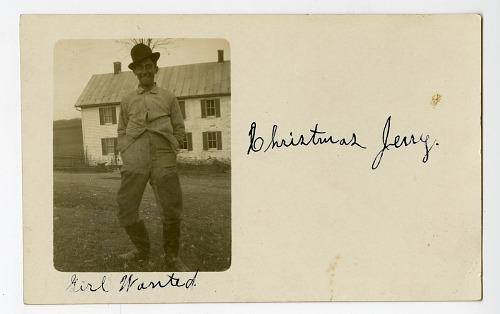 Christmas Jerry.
Girl Wanted.